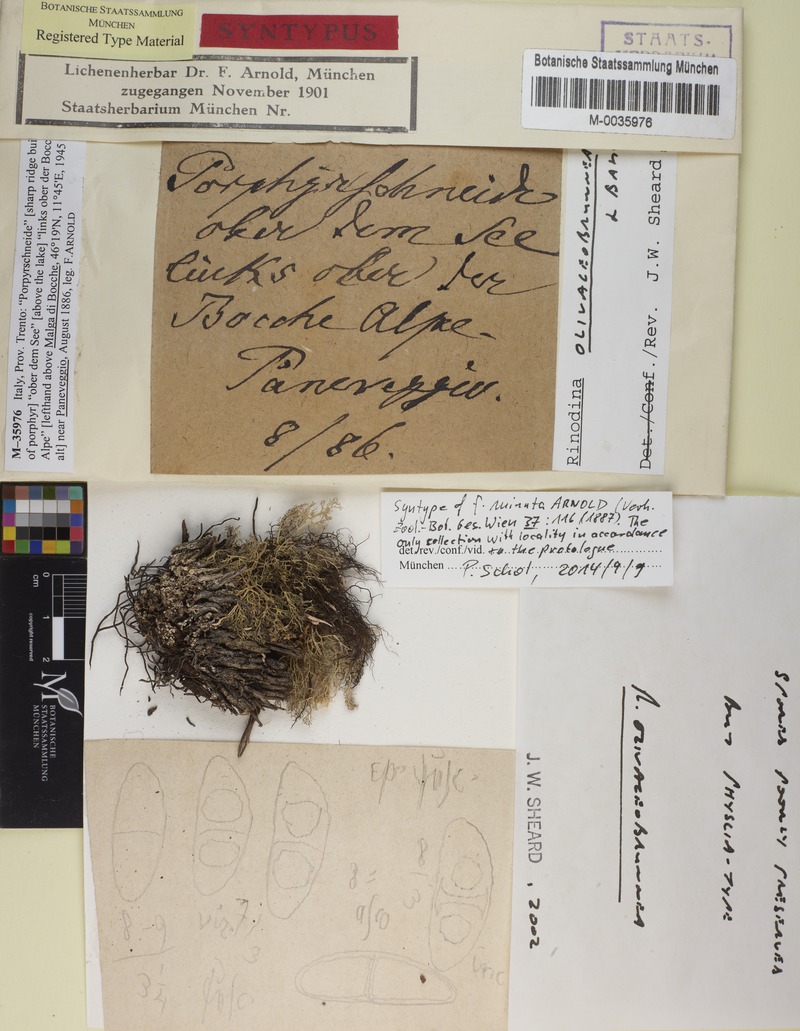 BOTANISCHE STAATSSAMMLUNG
MÜNCHEN
Registered Type Material
SYNTYPUS
STAATS-
Lichenenherbar Dr. F. Arnold, München
zugegangen November 1901
Staatsherbarium München Nr.
Botanische Staatssammlung München
M-0035976
M–35976 Italy, Prov. Trento: “Porpyrschneide” [sharp ridge bui
of porphyr] “ober dem See” [above the lake] “links ober der Bocc
Alpe” [lefthand above Malga di Bocche, 46°19'N, 11°45'E, 1945
alt] near Paneveggio, August 1886, leg. F. ARNOLD
Porphyrschneide
ober dem See
links ober der
Bocche Alpe-
Paneveggio.
8/86.
Rinodina OLIVACEOBRUNNEA
& BAN
Det./Conf./Rev. J.W. Sheard
Syntype of f. minuta ARNOLD (Verh.
Zool.-Bot. Ges. Wien 37: 116 (1887). The
only collection with locality in accordance
det./rev./conf./vid. to the protologue
München P. Schol, 2014/9/9
cm
0
1
2
copyright reserved
BOTANISCHE
STAATSSAMMLUNG
MÜNCHEN
SPORES POORLY PRESERVED
BUT PHYSCIA-TYPE
R. OLIVACEOBRUNNEA
J. W. SHEARD , 2002